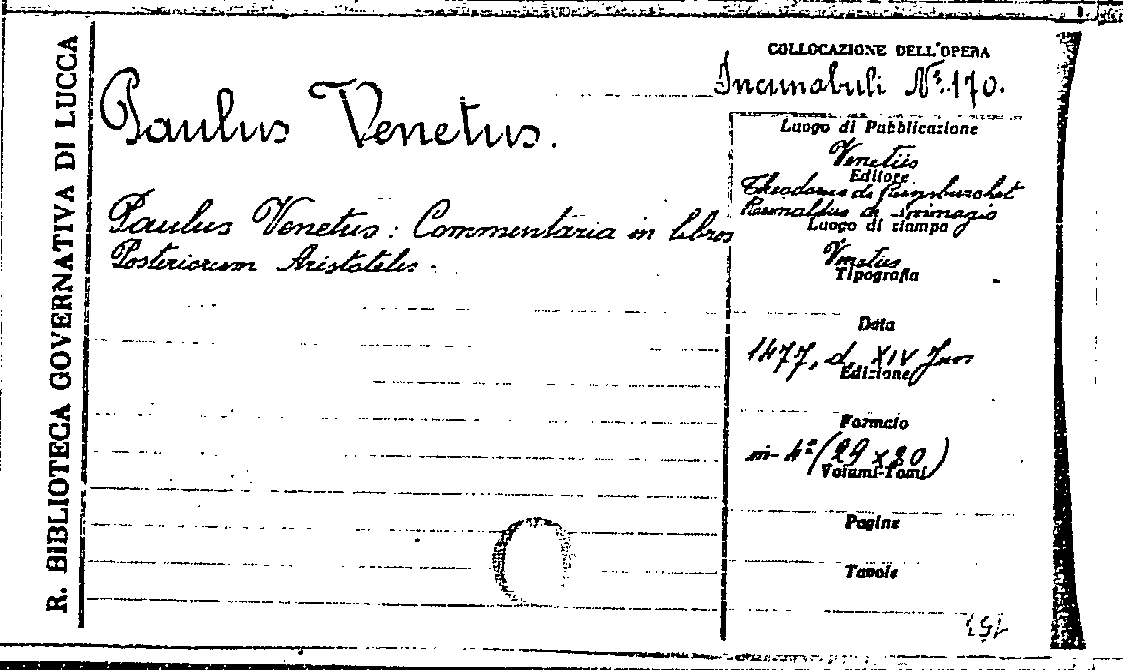 R. BIBLIOTECA GOVERNATIVA DI LUCCA
Paulus Venetus.
Paulus Venetus: Commentaria in libros
Posteriorum Aristotelis.
COLLOCAZIONE DELL'OPERA
Incunabuli Nº. 170.
Luogo di Pubblicazione
Venetiis
Editore
Theodorus de
Raynaldus de
Luogo di stampa
Venetiis
Tipografia
Data
1477, d. XIV
Edizione
Formato
in-4º (29 x 20)
Volumi-Tomi
Pagine
Tavole